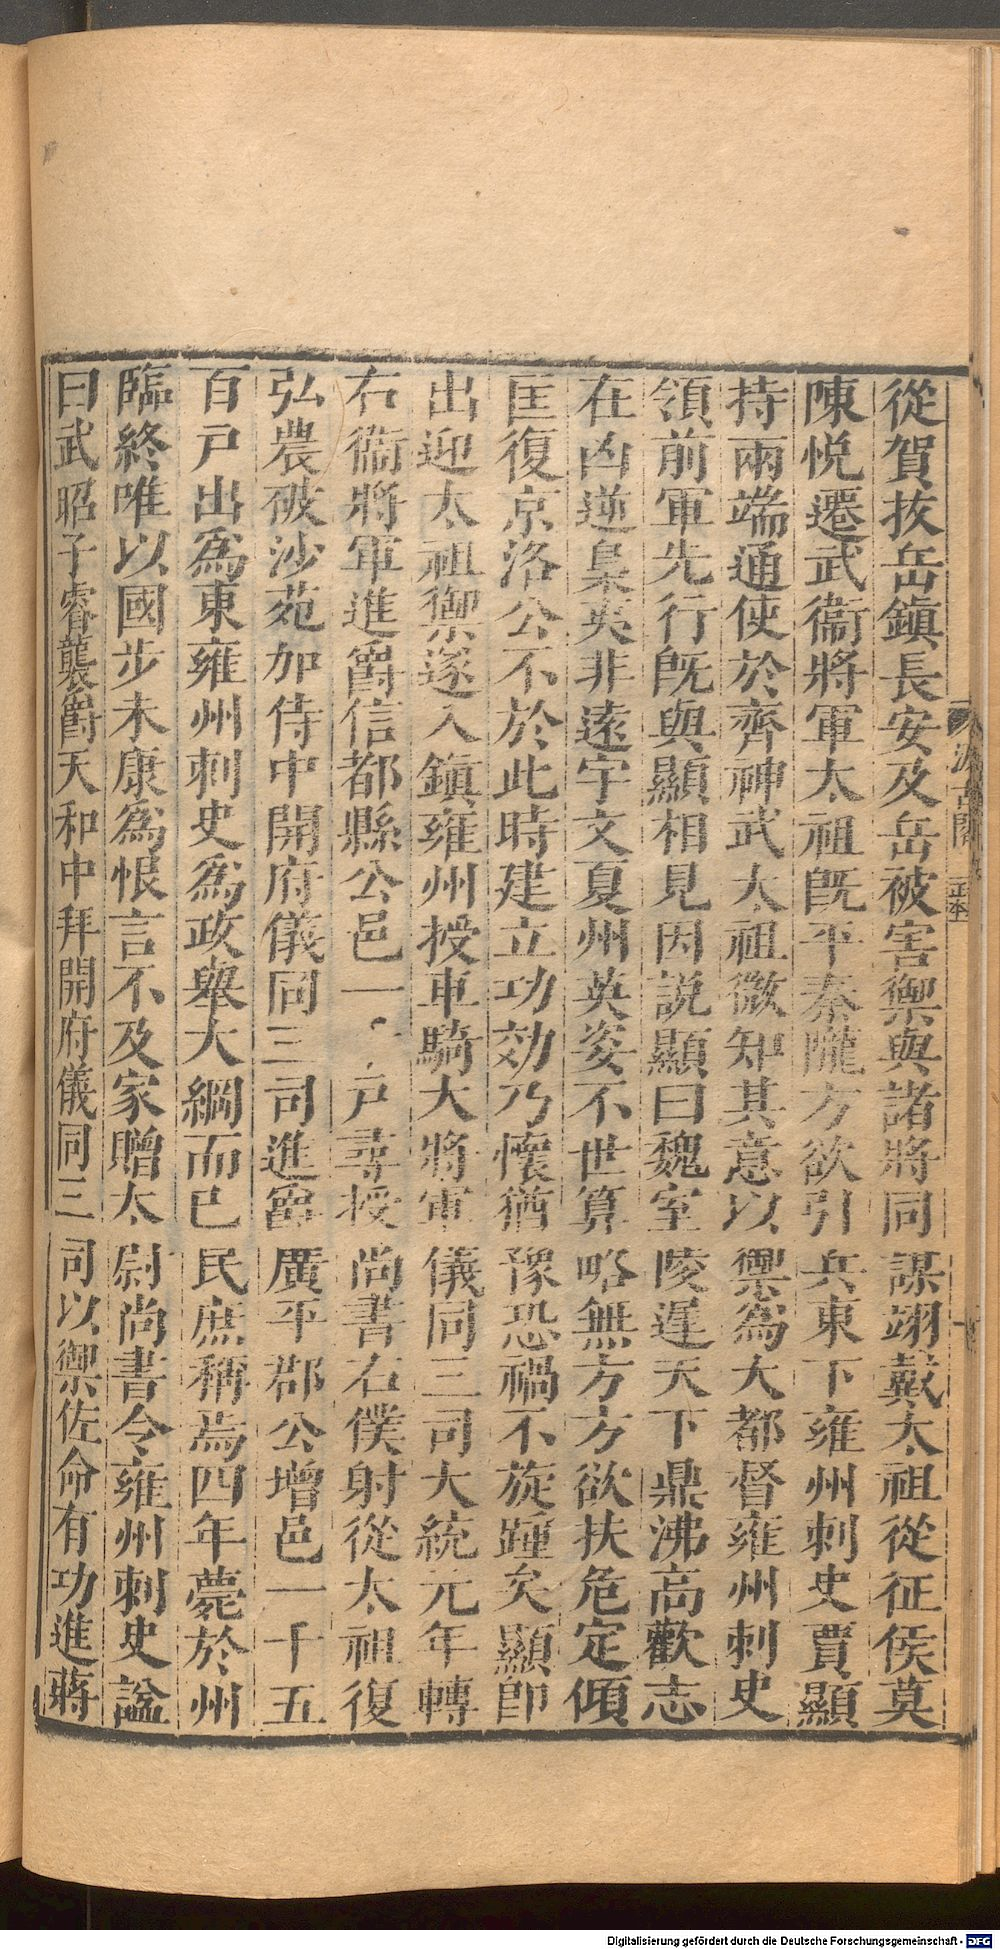 從賀拔岳鎮長安及岳被害禦與諸將同謀翊戴太祖從征侯莫
陳悅遷武衞將軍太祖旣平秦隴方欲引兵東下雍州刺史賈顯
持兩端通使於齊神武太祖微知其意以禦為大都督雍州刺史
領前軍先行旣與顯相見因說顯曰魏室陵遲天下鼎沸高歡志
在凶逆梟夷非遠宇文夏州英姿不世算略無方方欲扶危定傾
匡復京洛公不於此時建立功効乃懷猶豫恐禍不旋踵矣顯卽
出迎太祖禦遂入鎮雍州授車騎大將軍儀同三司大統元年轉
右衞將軍進爵信都縣公邑一戶尋授尚書右僕射從太祖復
弘農破沙苑加侍中開府儀同三司進爵廣平郡公增邑一千五
百戶出為東雍州刺史為政舉大綱而已民庶稱焉四年薨於州
臨終唯以國步未康為恨言不及家贈太尉尚書令雍州刺史諡
曰武昭子睿襲爵天和中拜開府儀同三司以禦佐命有功進蔣
汲古閣
正本
Digitalisierung gefördert durch die Deutsche Forschungsgemeinschaft - DFG